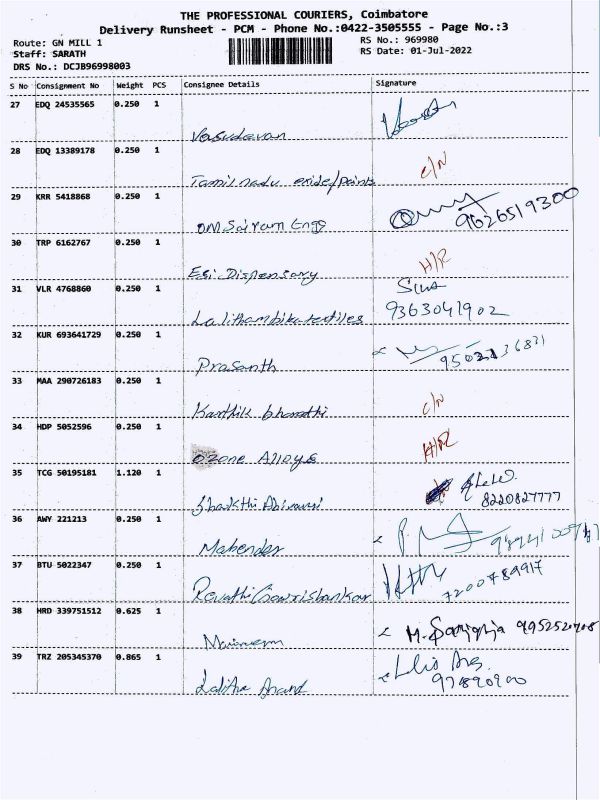 THE PROFESSIONAL COURIERS, Coimbatore
Delivery Runsheet - PCM - Phone No.:0422-3505555 - Page No.:3
Route: GN MILL 1
RS No.: 969980
Staff: SARATH
RS Date: 01-Jul-2022
DRS No.: DCJB96998003
S No Consignment No Weight PCS Consignee Details Signature
27 EDQ 24535565 0.250 1
Vasudavan
28 EDQ 13389178 0.250 1
C/N
Tamil nadu oxide/paints
29 KRR 5418868 0.250 1
9626519300
OM Sairam Engg
30 TRP 6162767 0.250 1
H/R
Esi Dispensary
31 VLR 4768860 0.250 1
Siva
Lalithambika textiles 9363041902
32 KUR 693641729 0.250 1
Prasanth
33 MAA 290726183 0.250 1
C/N
Karthik bharathi
34 HDP 5052596 0.250 1
H/R
Ozone Alloys
35 TCG 50195181 1.120 1
8220827777
Shakthi Abirami
36 AWY 221213 0.250 1
Mahender
37 BTU 5022347 0.250 1
7200789917
Revathi Gowrishankar
38 HRD 339751512 0.625 1
39 TRZ 205345370 0.865 1
Lalitha Anand